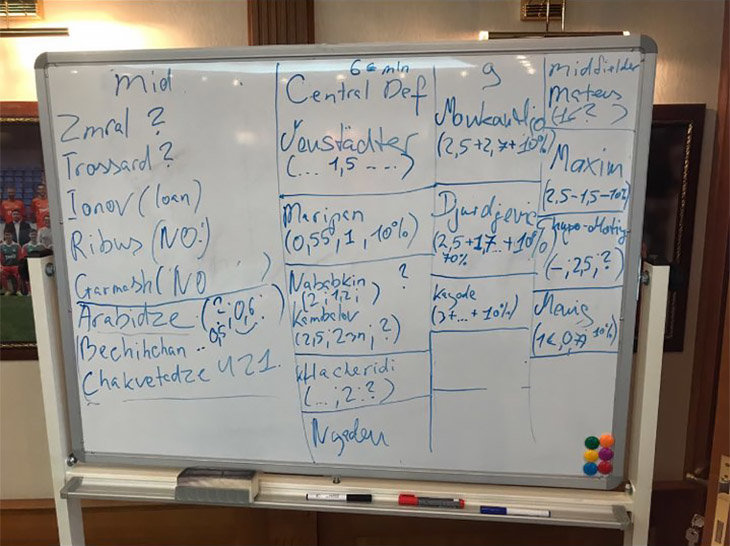 Mid
Zmral ?
Trossard ?
Ionov (loan)
Ribus (NO:)
Garmash (NO )
Arabidze (2; 0,6;
0,5;
Bechihchan ..
Chakvetadze U21.
6 € mln
Central Def
Neustädter
(... 1,5 ....)
Maripan
(0,55, 1, 10%)
Nababkin ?
(2; 1,2; )
Kambolov
(2,5; 2>n; ?)
Khacheridi
(...; 2; ?)
Ngadeu
9
Moukandjo
(2,5+2,7+10%)
Djurdjevic
(2,5+1,7...+10%)
10%
Kayode
(3+...+10%)
Midfielder
Mateus
(1€ ? )
Maxim
(2,5-1,5-10%)
Chupo-Moting
(-; 2,5; ?)
Mevis
(1€, 0,7 10%)